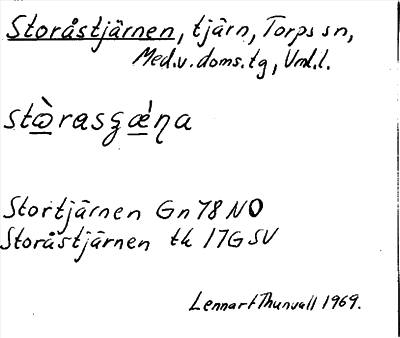 Storåstjärnen, tjärn, Torps sn,
Med.v. doms.tg, Vml.l.
stὼ̲rasʒǽ̲ɳa
Stortjärnen Gn 78 NO
Storåstjärnen tk 17G SV
Lennart Thunvall 1969.